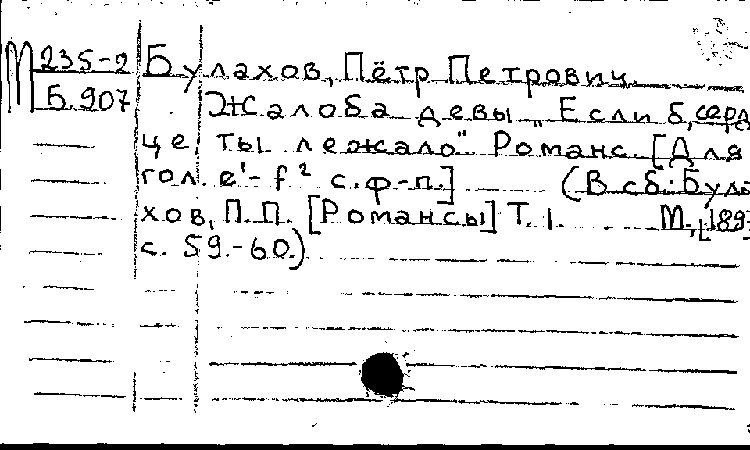 М 235-2 Булахов, Пётр Петрович.
Б.907 Жалоба девы „Если б, серд
це, ты лежало" Романс. [Для
гол. e¹- f² с.ф-п.] (В сб.: Була
хов, П.П. [Романсы] Т. 1. М., [189
с. 59.-60.)